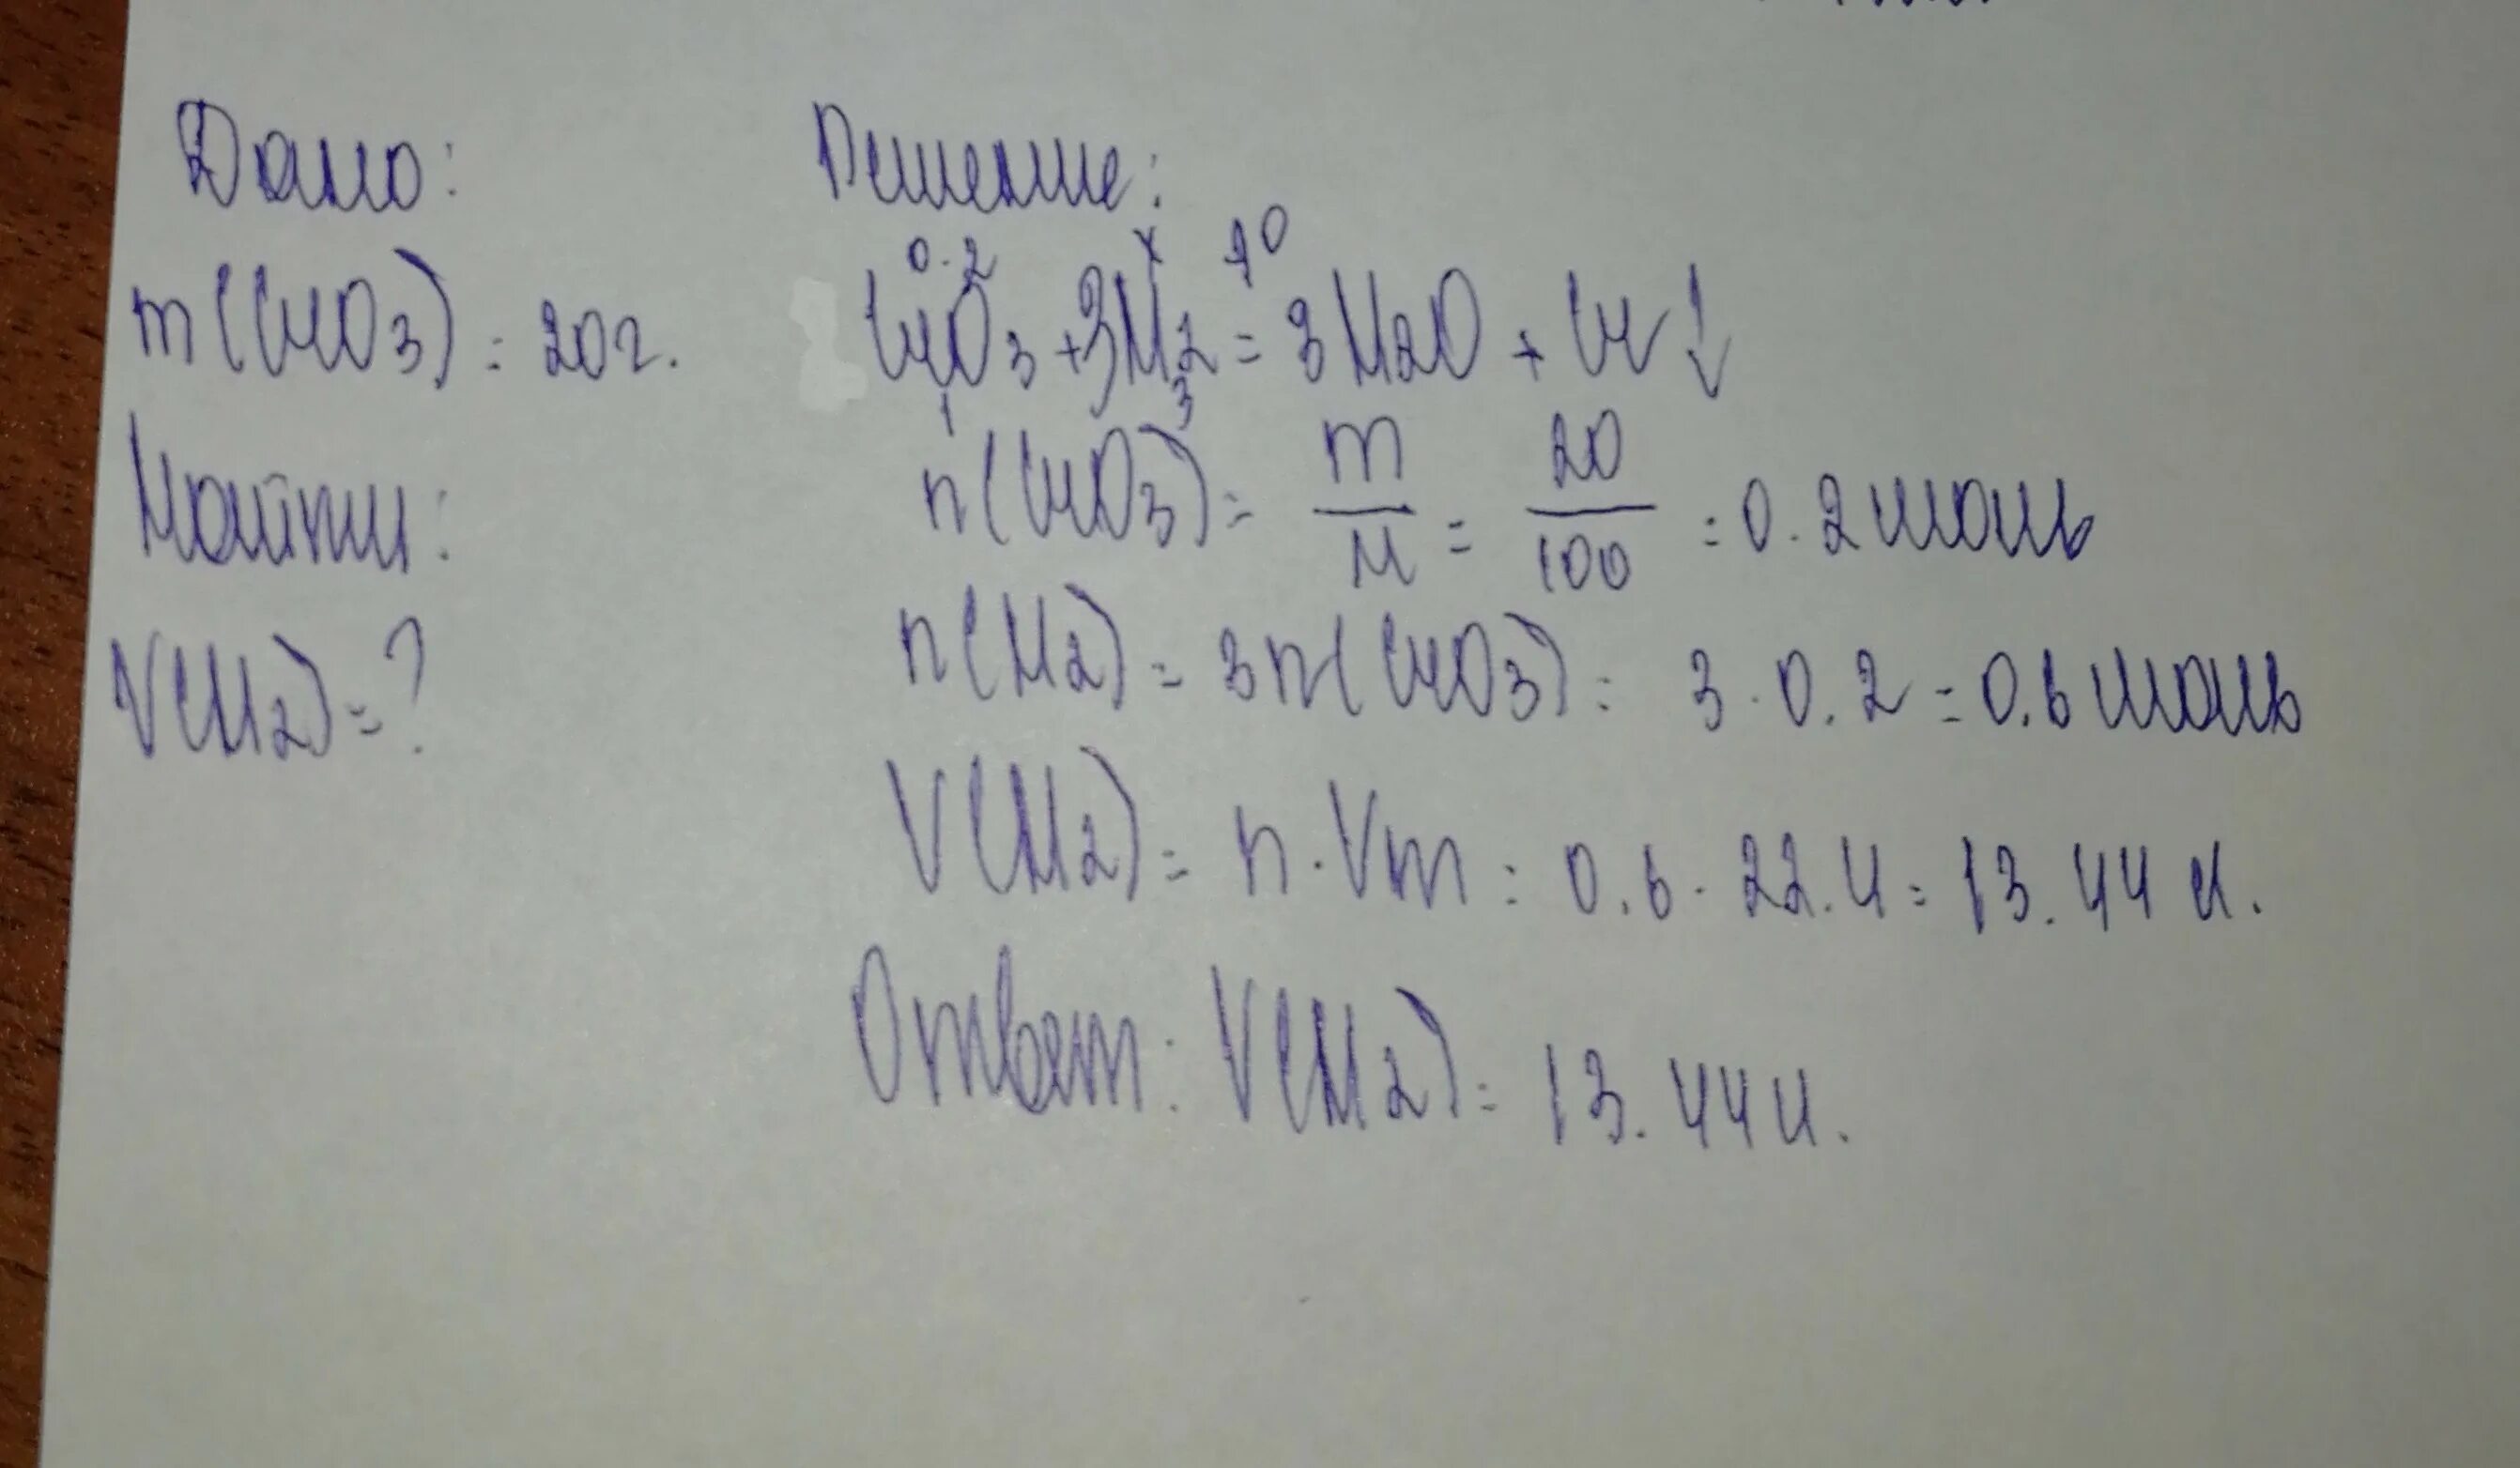 Дано:
m(CrO3) = 20г.
Найти:
V(H2) = ?
Решение:
0.2 x t°
CrO3 + 3H2 = 3H2O + Cr↓
1 3
n(CrO3) = m/M = 20/100 = 0.2 моль
n(H2) = 3n(CrO3) = 3 · 0.2 = 0.6 моль
V(H2) = n · Vm = 0.6 · 22.4 = 13.44 л.
Ответ: V(H2) = 13.44 л.